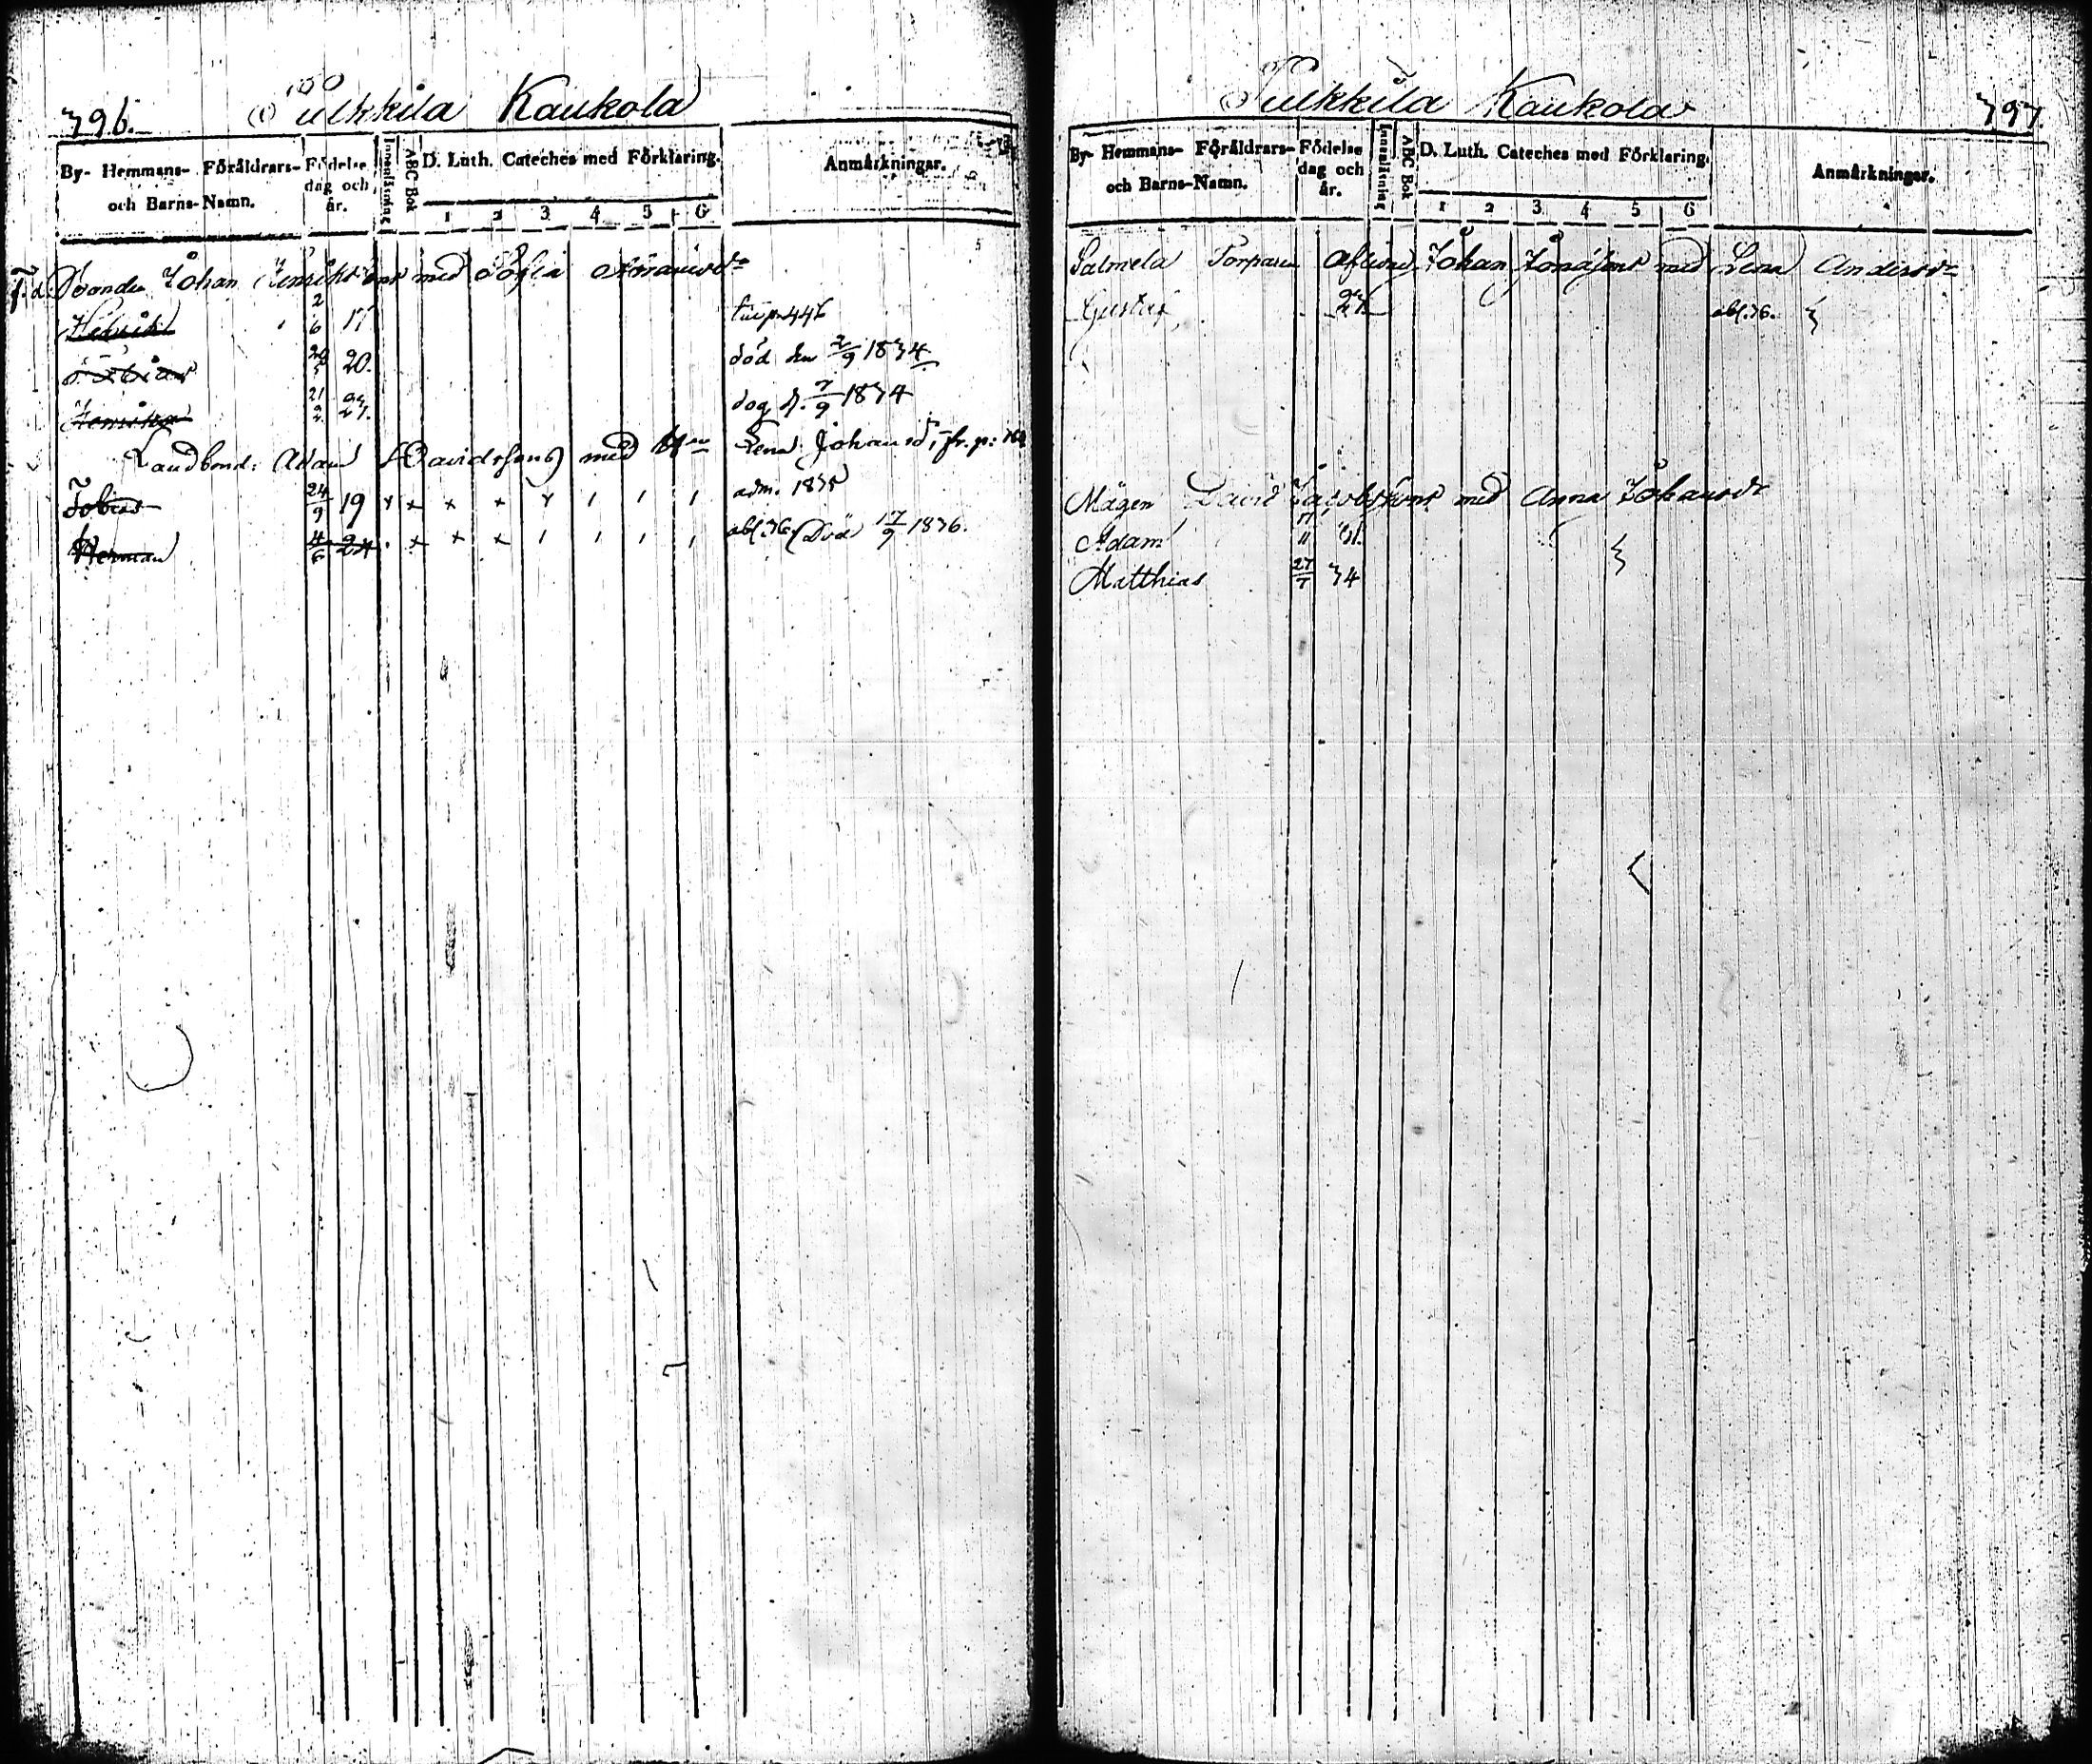 796.
Pulkkila Kaukola
By- Hemmans- Föräldrars- och Barns-Namn.
Födelse dag och år.
Innanläsning
ABC Bok
D. Luth. Cateches med Förklaring.
1 2 3 4 5 6
Anmärkningar.
F. d. Bonden Johan Henrikssons med Sofia
Henrik 2/6 17 446
Tobias 20. död den 2/9 1834
21/2 27. dog d. 7/9 1834
Landbond: Adam Davidssons med Lena Johansdr, fr. p:
Tobias 24/9 19 x x x x x adm. 1835
Herman 4/6 24 x x x abs. 36. Död 17/9 1836.
Pulkkila Kaukola
797.
By- Hemmans- Föräldrars- och Barns-Namn.
Födelse dag och år.
Innanläsning
ABC Bok
D. Luth. Cateches med Förklaring.
1 2 3 4 5 6
Anmärkningar.
Salmela Torparen Johan med Lena Andersdr
Gustaf 27. abs. 36.
Mågen David Jacobssons med Anna Johansdr
Adam 17/11 31.
Matthias 27/7 34